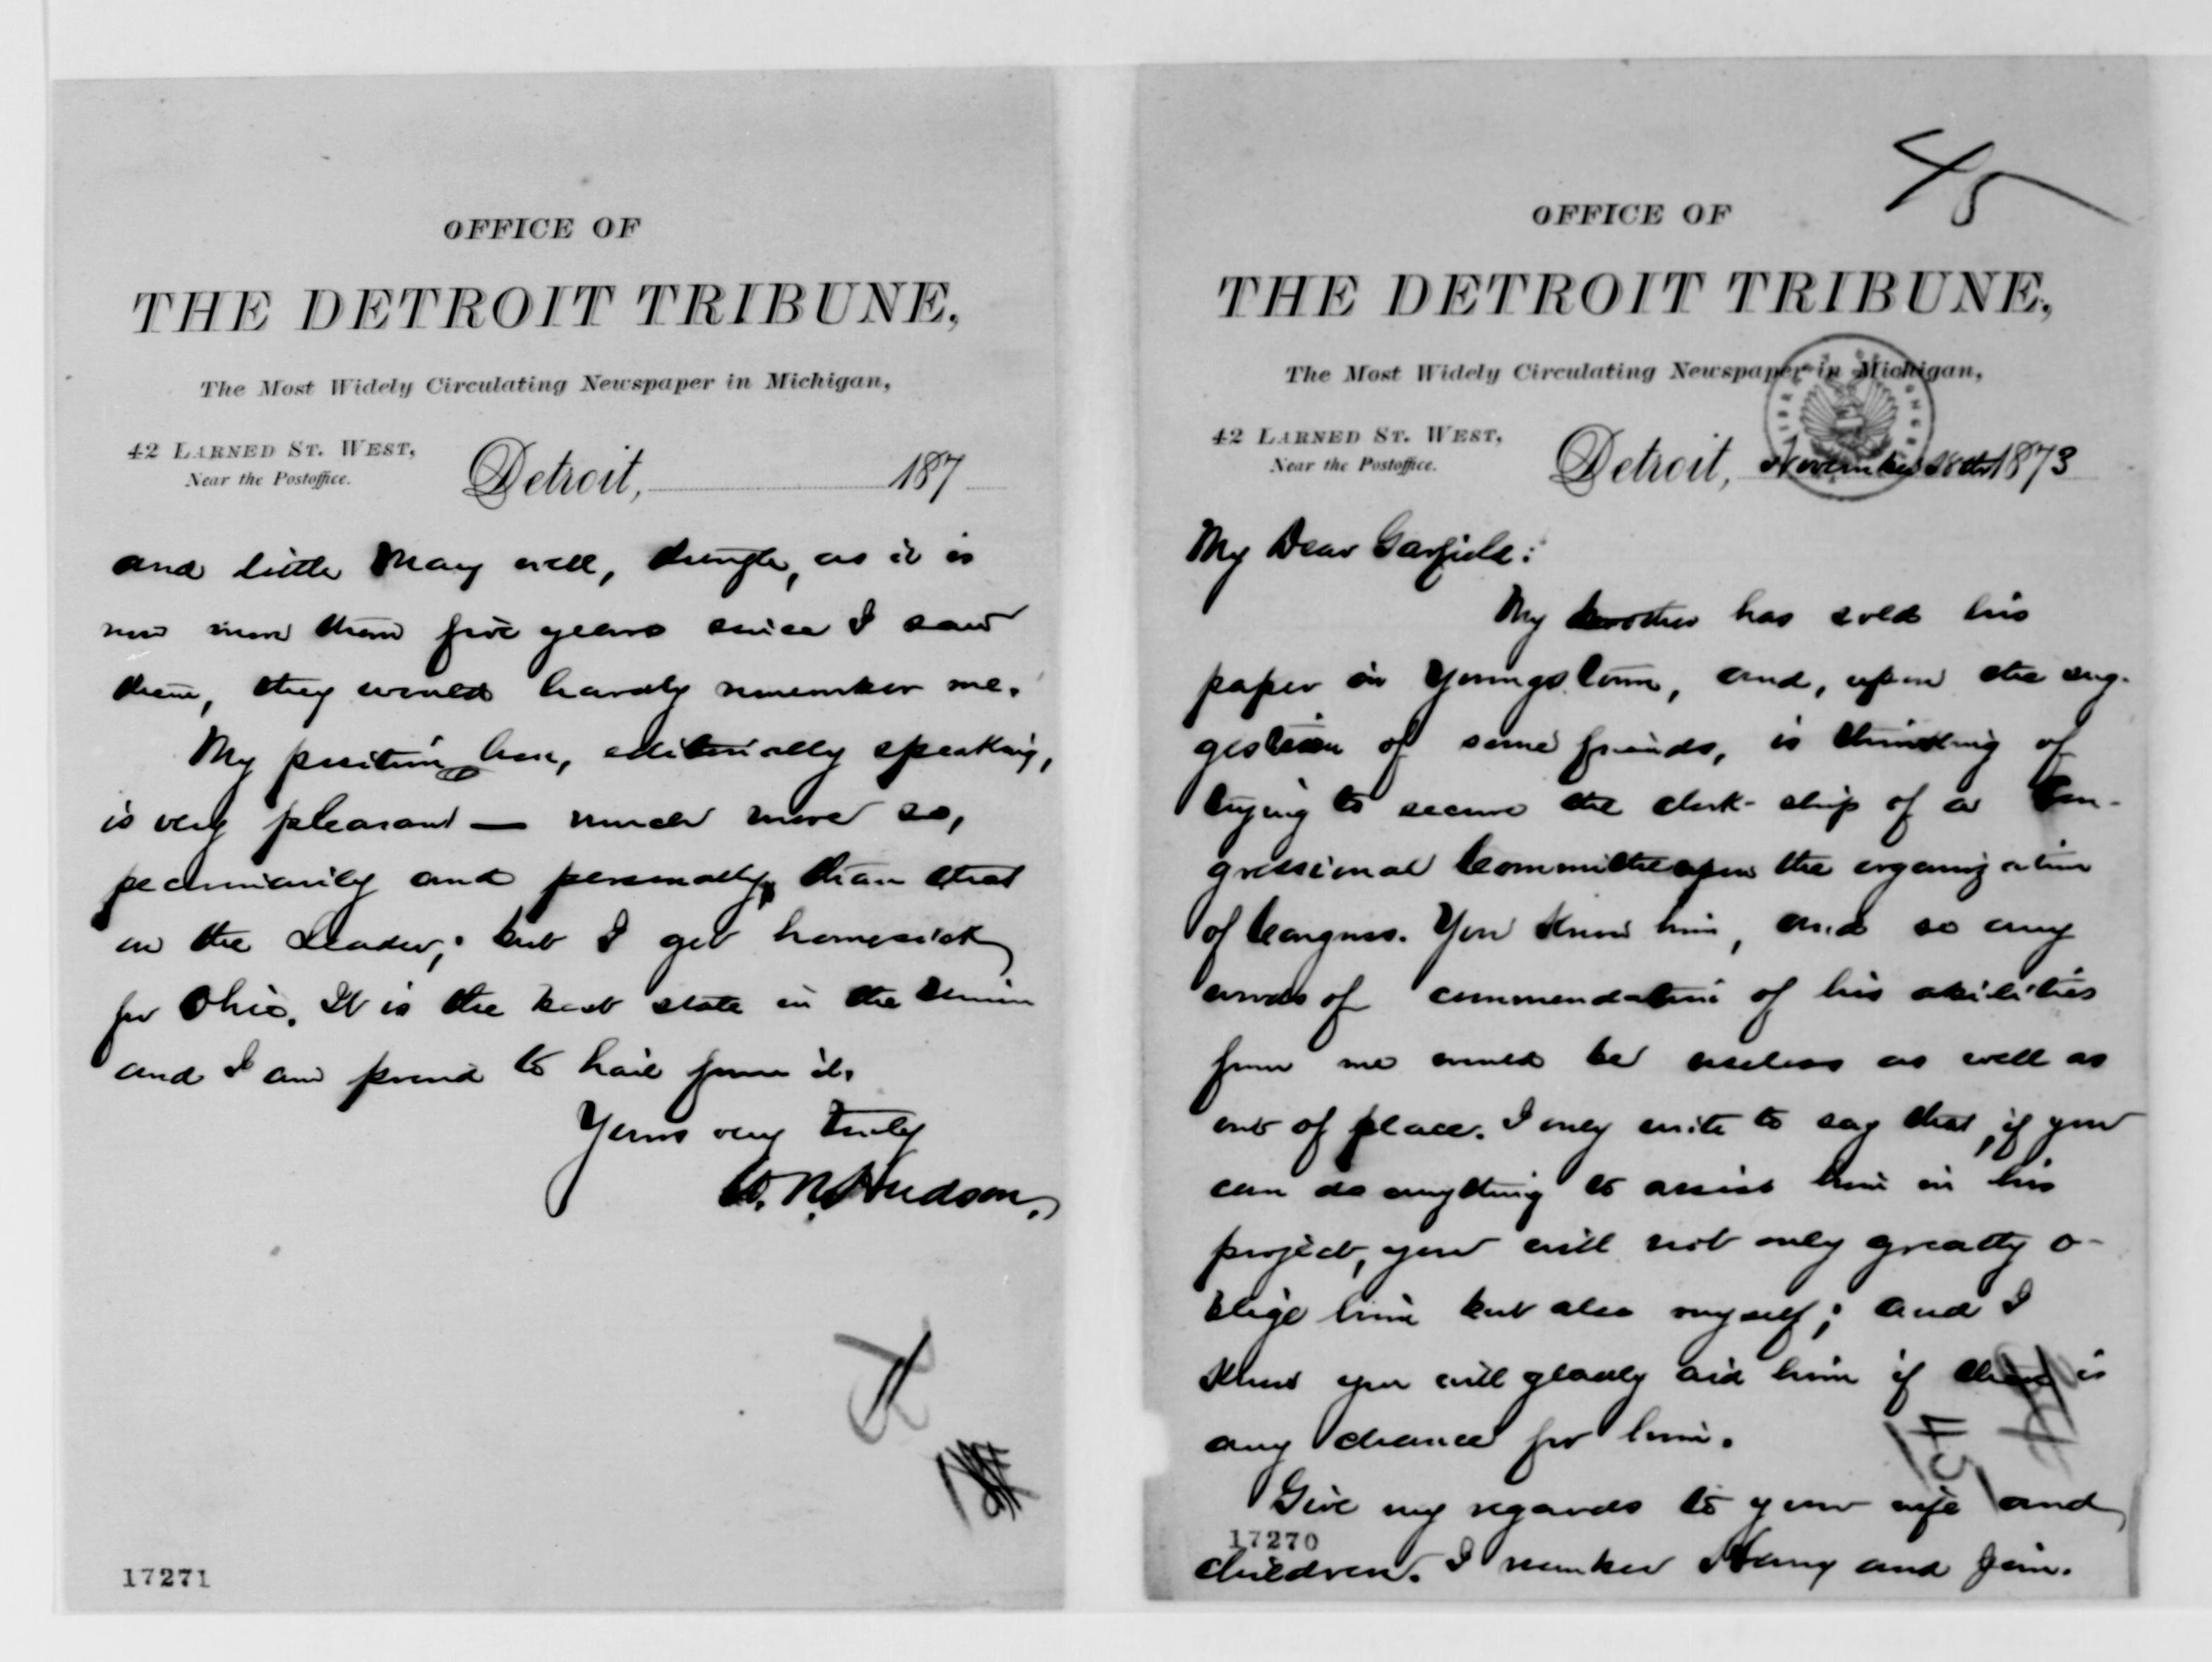 45
OFFICE OF
THE DETROIT TRIBUNE,
The Most Widely Circulating Newspaper in Michigan,
42 LARNED ST. WEST,
Near the Postoffice.
Detroit, November 18th 1873
My Dear Garfield:
My brother has sold his
paper in Youngstown, and, upon the sug-
gestion of some friends, is thinking of
trying to secure the clerk-ship of a Con-
gressional Committee upon the organization
of Congress. You know him, and so any
words of commendation of his abilities
from me would be useless as well as
out of place. I only write to say that, if you
can do anything to assist him in his
project, you will not only greatly o-
blige him but also myself; and I
know you will gladly aid him if there is
any chance for him.
Give my regards to your wife and
children. I remember Harry and Jim.
17270
45
OFFICE OF
THE DETROIT TRIBUNE,
The Most Widely Circulating Newspaper in Michigan,
42 LARNED ST. WEST,
Near the Postoffice.
Detroit, 187
and little May well, though, as it is
now more than five years since I saw
them, they would hardly remember me.
My position here, editorially speaking,
is very pleasant — much more so,
pecuniarily and personally, than that
on the Leader; but I get homesick
for Ohio. It is the best state in the Union
and I am proud to hail from it.
Yours very truly
W. N. Hudson.
17271